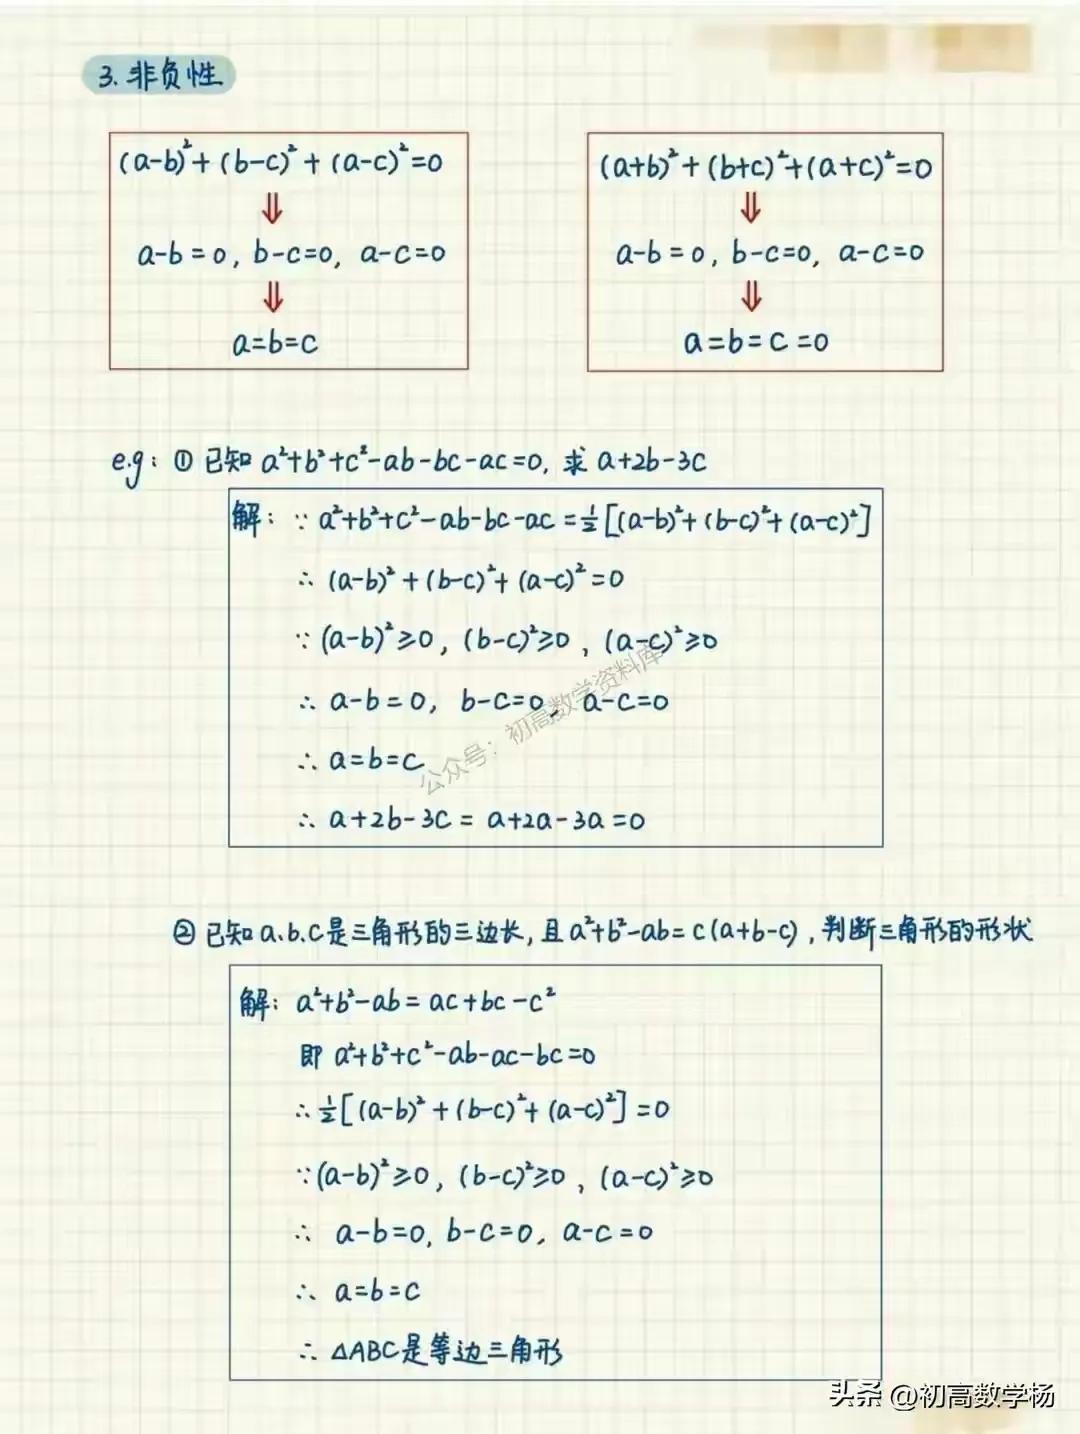 3. 非负性
(a-b)²+(b-c)²+(a-c)²=0
⇓
a-b=0, b-c=0, a-c=0
⇓
a=b=c
(a+b)²+(b+c)²+(a+c)²=0
⇓
a-b=0, b-c=0, a-c=0
⇓
a=b=c=0
e.g: ① 已知 a²+b²+c²-ab-bc-ac=0, 求 a+2b-3c
解: ∵ a²+b²+c²-ab-bc-ac=½[(a-b)²+(b-c)²+(a-c)²]
∴ (a-b)²+(b-c)²+(a-c)²=0
∵ (a-b)²≥0, (b-c)²≥0, (a-c)²≥0
∴ a-b=0, b-c=0, a-c=0
∴ a=b=c
∴ a+2b-3c=a+2a-3a=0
公众号: 初高数学资料库
② 已知 a.b.c是三角形的三边长, 且 a²+b²-ab=c(a+b-c), 判断三角形的形状
解: a²+b²-ab=ac+bc-c²
即 a²+b²+c²-ab-ac-bc=0
∴ ½[(a-b)²+(b-c)²+(a-c)²]=0
∵ (a-b)²≥0, (b-c)²≥0, (a-c)²≥0
∴ a-b=0, b-c=0, a-c=0
∴ a=b=c
∴ △ABC是等边三角形
头条 @初高数学杨